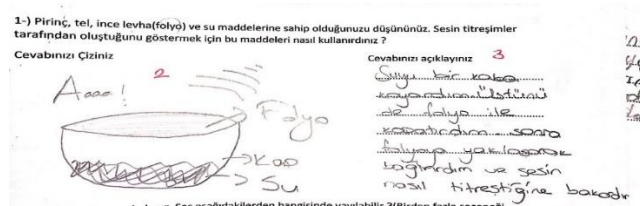 1-) Pirinç, tel, ince levha(folyo) ve su maddelerine sahip olduğunuzu düşününüz. Sesin titreşimler
tarafından oluştuğunu göstermek için bu maddeleri nasıl kullanırdınız ?
Cevabınızı Çiziniz
2
Aaaa!
Folyo
Kap
Su
Cevabınızı açıklayınız
3
Suyu bir kaba
koyardım. Üstünü
de folyo ile
kapatırdım. sonra
folyoya yaklaşarak
bağırırdım ve sesin
nasıl titreştiğine bakardım